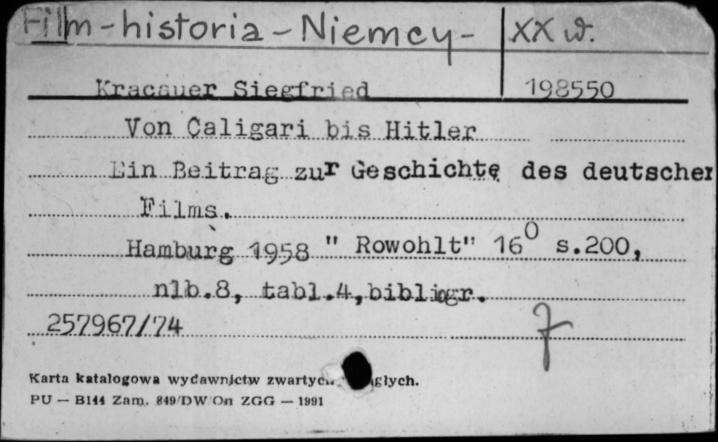 Film-historia-Niemcy- XX w.
Kracauer Siegfried 198550
Von Caligari bis Hitler
Ein Beitrag zur Geschichte des deutschen
Films.
Hamburg 1958 " Rowohlt" 16⁰ s.200,
nlb.8, tabl.4,bibliogr.
257967/74 7
Karta katalogowa wydawnictw
PU — B144 Zam. 849/DW/On ZGG — 1991